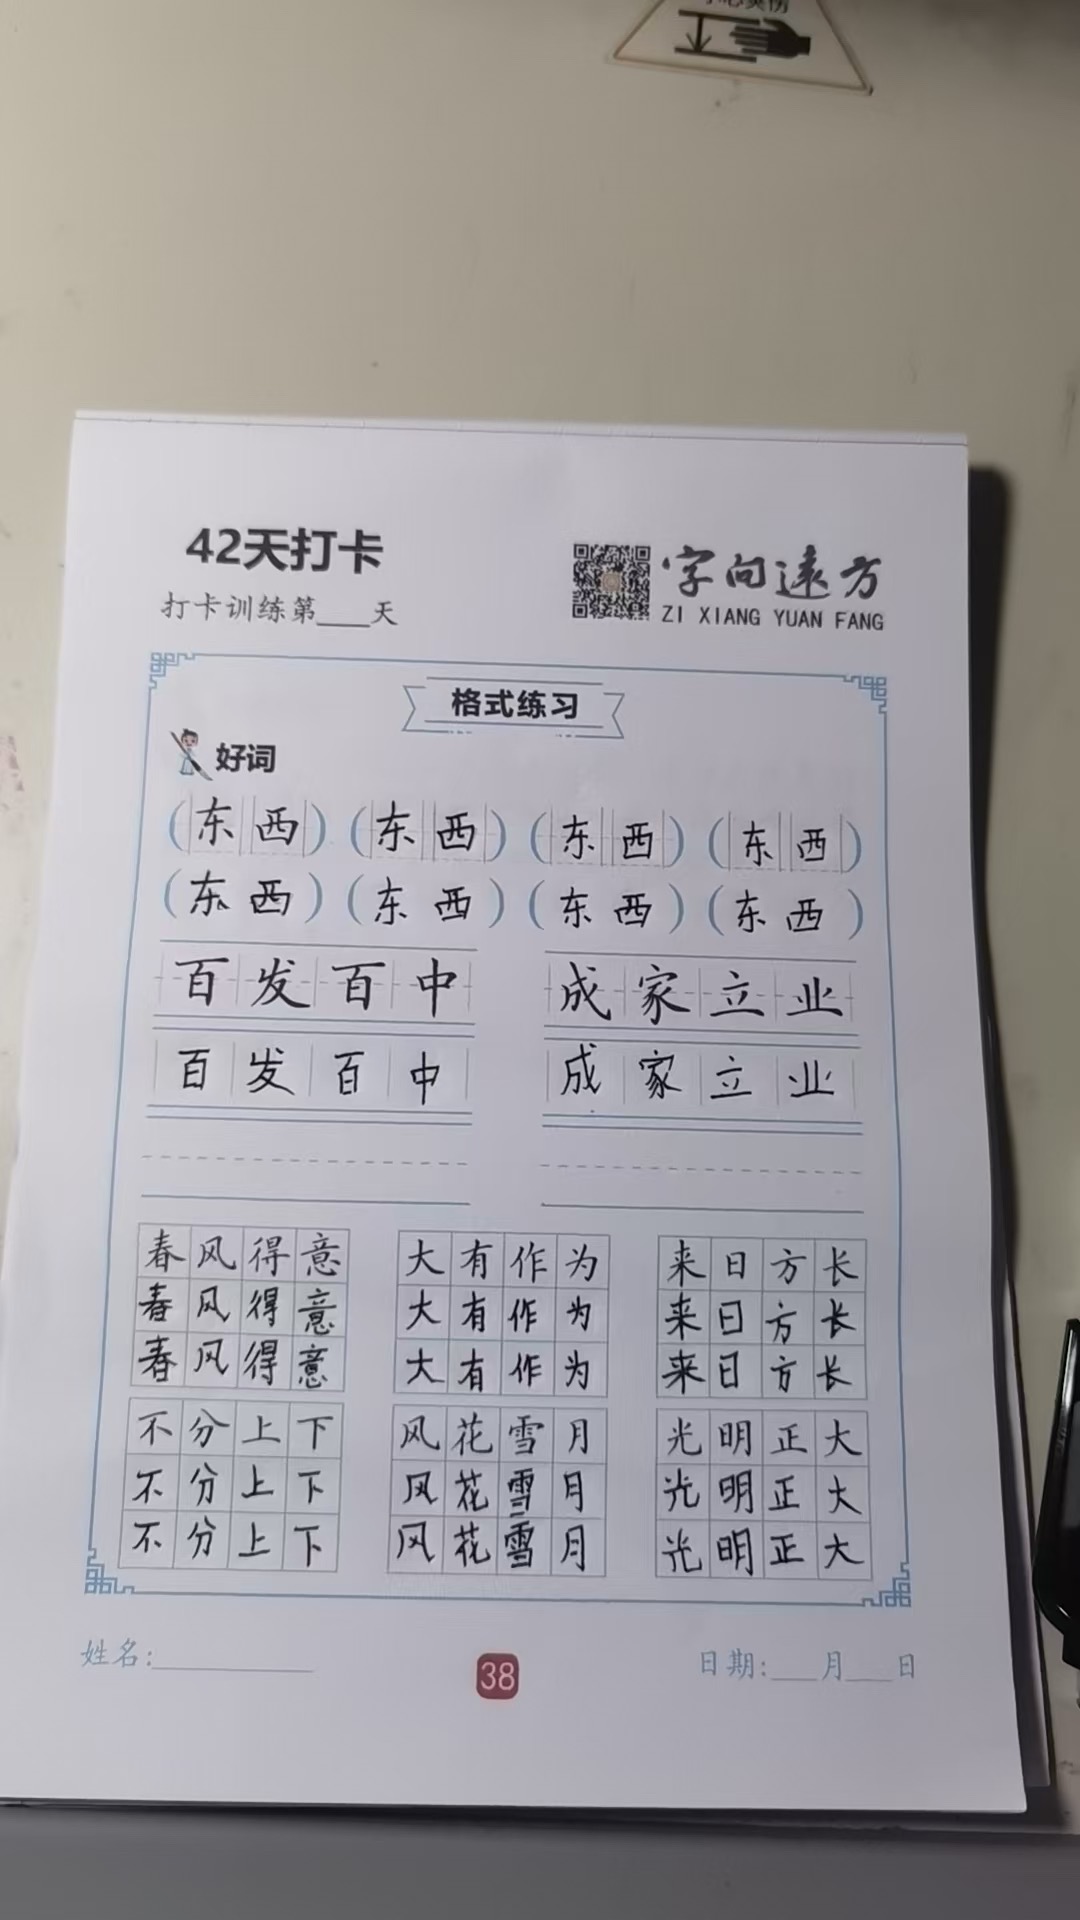 小心夹伤
42天打卡
打卡训练第___天
字向遠方
ZI XIANG YUAN FANG
格式练习
好词
(东西) (东西) (东西) (东西)
(东西) (东西) (东西) (东西)
百发百中 成家立业
百发百中 成家立业
春风得意 大有作为 来日方长
春风得意 大有作为 来日方长
春风得意 大有作为 来日方长
不分上下 风花雪月 光明正大
不分上下 风花雪月 光明正大
不分上下 风花雪月 光明正大
姓名:____________ 38 日期:___月___日